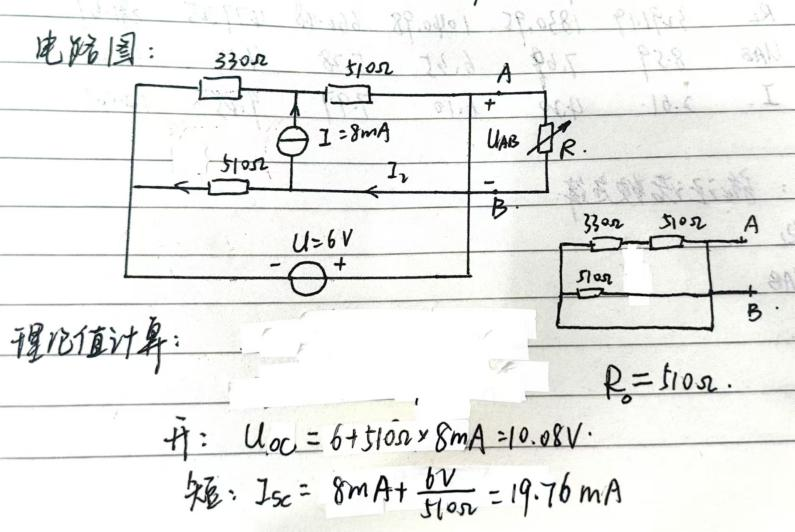 电路图:
330Ω
510Ω
A
+
I=8mA
U_AB
R.
510Ω
I₂
-
B.
U=6V
- +
330Ω 510Ω A
510Ω
B.
理论值计算:
R₀=510Ω.
开: U_OC=6+510Ω×8mA=10.08V.
短: I_SC=8mA+6V/510Ω=19.76mA